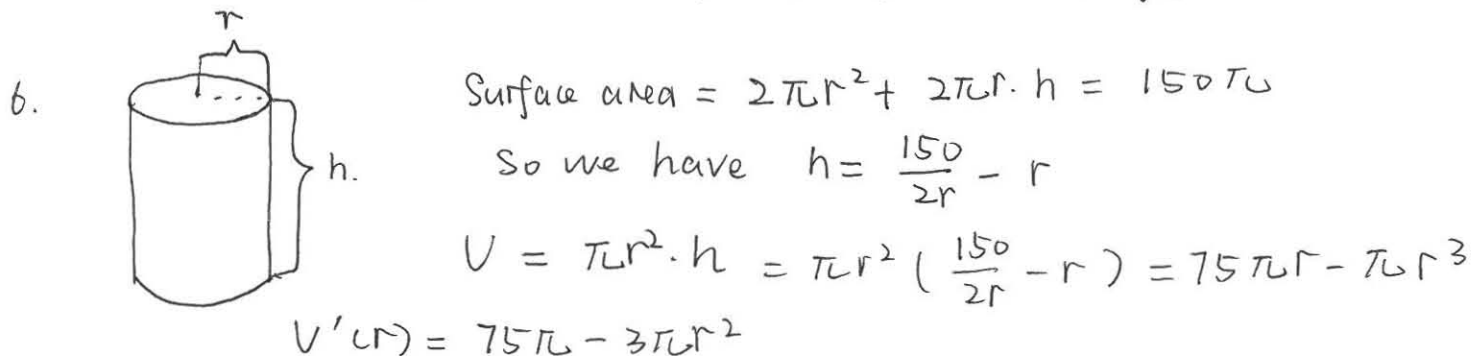 r
6.
h.
Surface area = 2πr² + 2πr. h = 150π
So we have h = 150/2r - r
V = πr². h = πr² ( 150/2r - r ) = 75πr - πr³
V'(r) = 75π - 3πr²